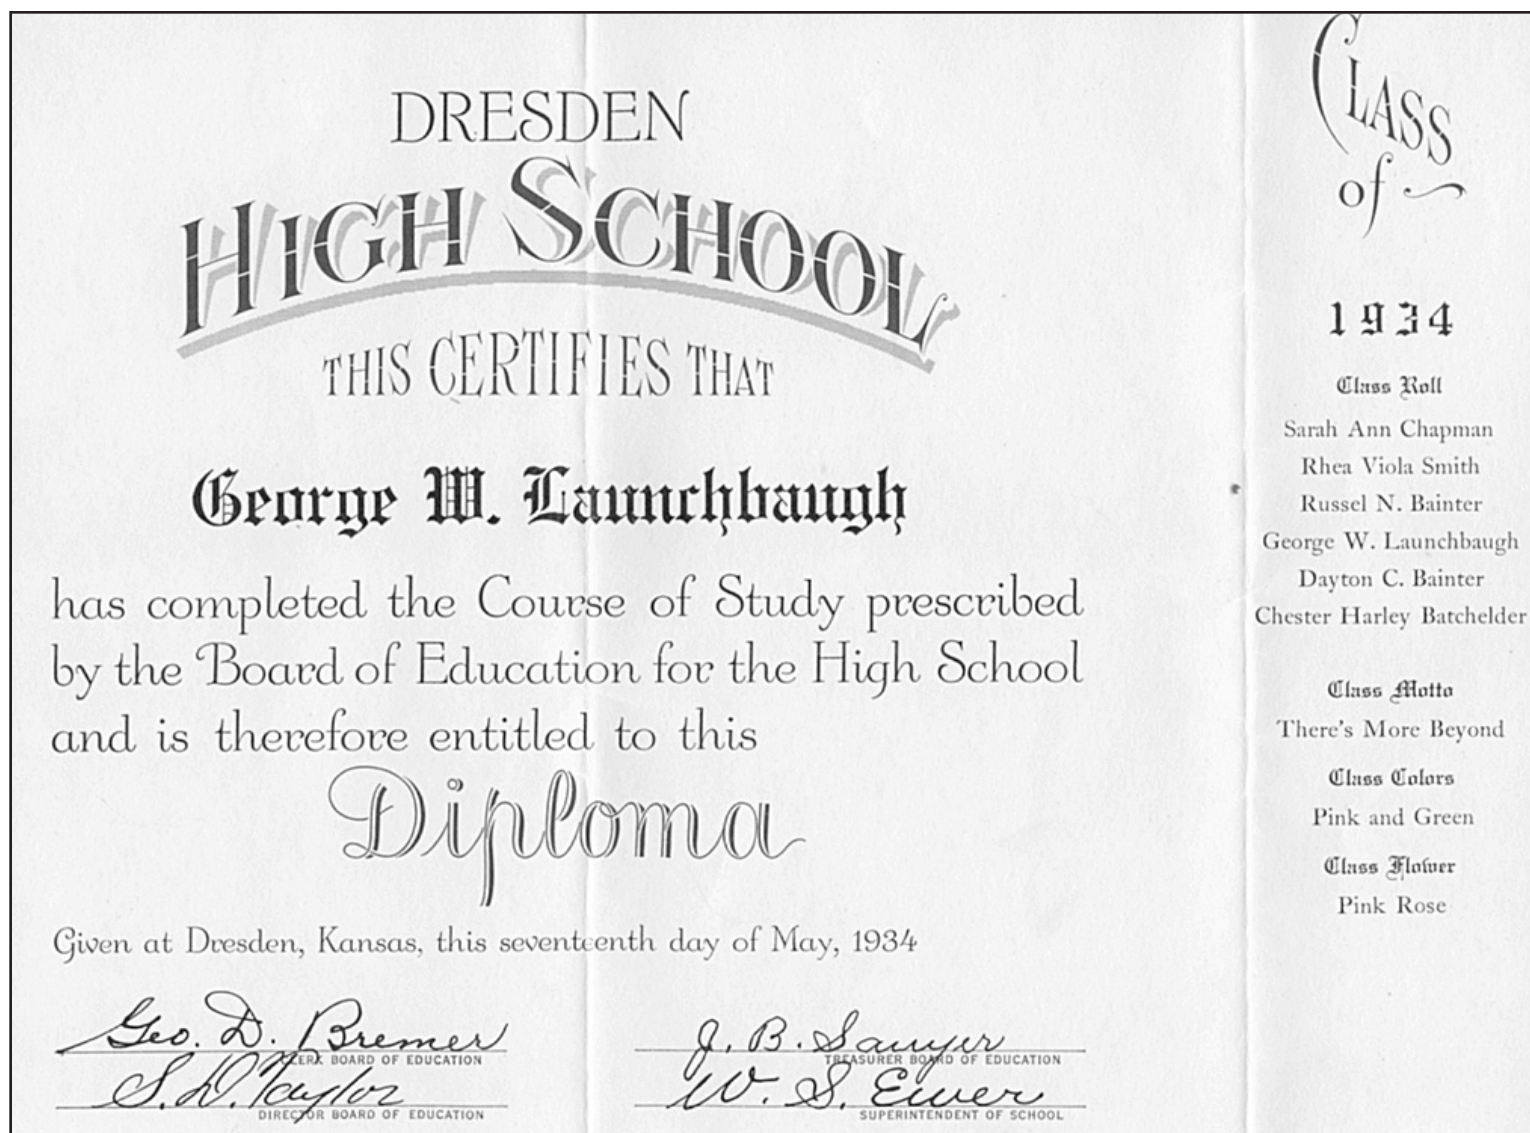 DRESDEN
HIGH SCHOOL
THIS CERTIFIES THAT
George W. Launchbaugh
has completed the Course of Study prescribed
by the Board of Education for the High School
and is therefore entitled to this
Diploma
Given at Dresden, Kansas, this seventeenth day of May, 1934
Geo. D. Bremer
CLERK BOARD OF EDUCATION
S. D. Taylor
DIRECTOR BOARD OF EDUCATION
J. B. Sawyer
TREASURER BOARD OF EDUCATION
W. S. Ewer
SUPERINTENDENT OF SCHOOL
CLASS
of
1934
Class Roll
Sarah Ann Chapman
Rhea Viola Smith
Russel N. Bainter
George W. Launchbaugh
Dayton C. Bainter
Chester Harley Batchelder
Class Motto
There's More Beyond
Class Colors
Pink and Green
Class Flower
Pink Rose